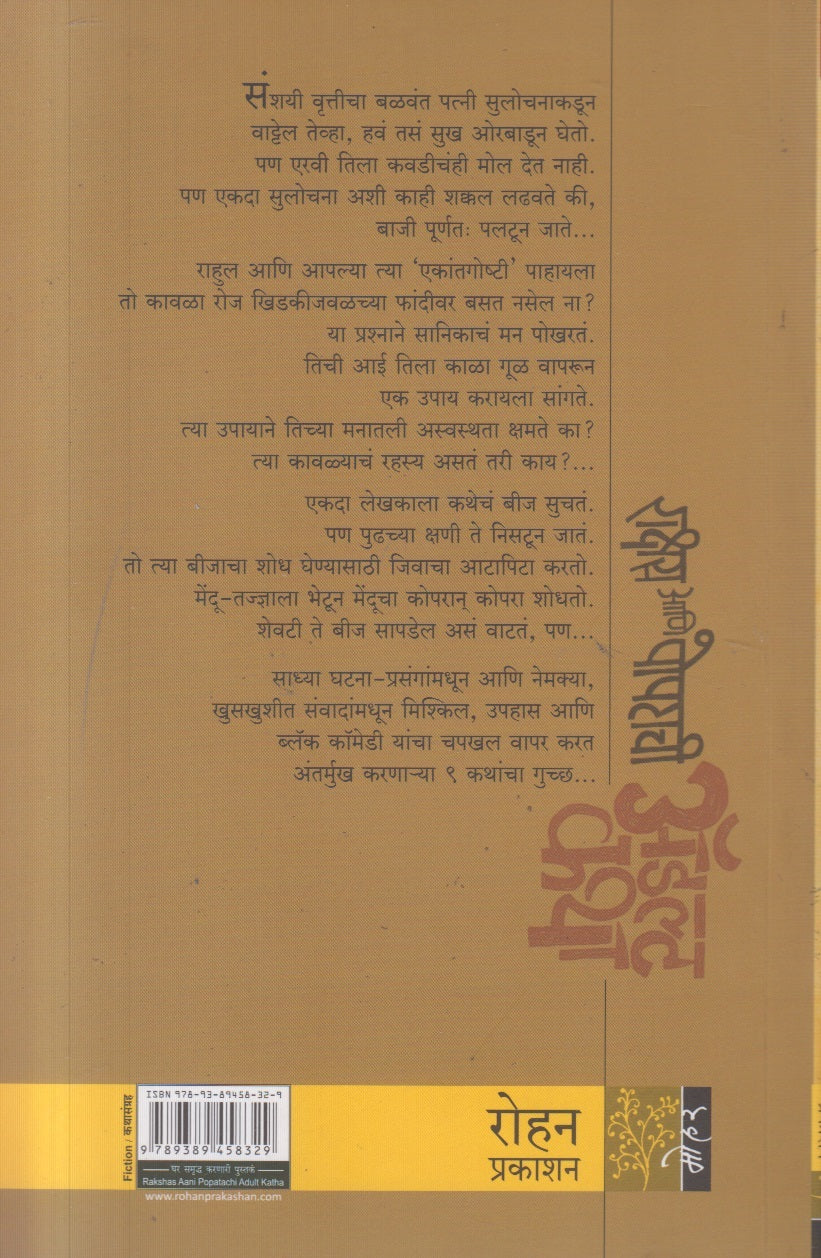 संशयी वृत्तीचा बळवंत पत्नी सुलोचनाकडून
वाट्टेल तेव्हा, हवं तसं सुख ओरबाडून घेतो.
पण एरवी तिला कवडीचंही मोल देत नाही.
पण एकदा सुलोचना अशी काही शक्कल लढवते की,
बाजी पूर्णतः पलटून जाते...
राहुल आणि आपल्या त्या 'एकांतगोष्टी' पाहायला
तो कावळा रोज खिडकीजवळच्या फांदीवर बसत नसेल ना?
या प्रश्नाने सानिकाचं मन पोखरतं.
तिची आई तिला काळा गूळ वापरून
एक उपाय करायला सांगते.
त्या उपायाने तिच्या मनातली अस्वस्थता क्षमते का?
त्या कावळ्याचं रहस्य असतं तरी काय?...
एकदा लेखकाला कथेचं बीज सुचतं.
पण पुढच्या क्षणी ते निसटून जातं.
तो त्या बीजाचा शोध घेण्यासाठी जिवाचा आटापिटा करतो.
मेंदू-तज्ज्ञाला भेटून मेंदूचा कोपरान् कोपरा शोधतो.
शेवटी ते बीज सापडेल असं वाटतं, पण...
साध्या घटना-प्रसंगांमधून आणि नेमक्या,
खुसखुशीत संवादांमधून मिश्किल, उपहास आणि
ब्लॅक कॉमेडी यांचा चपखल वापर करत
अंतर्मुख करणाऱ्या ९ कथांचा गुच्छ...
राक्षस आणि पोपटाची
अ‍ॅडल्ट
कथा
Fiction / कथासंग्रह
ISBN 978-93-89458-32-9
9 789389 458329
घर समृद्ध करणारी पुस्तकं
Rakshas Aani Popatachi Adult Katha
www.rohanprakashan.com
रोहन
प्रकाशन
मोहर